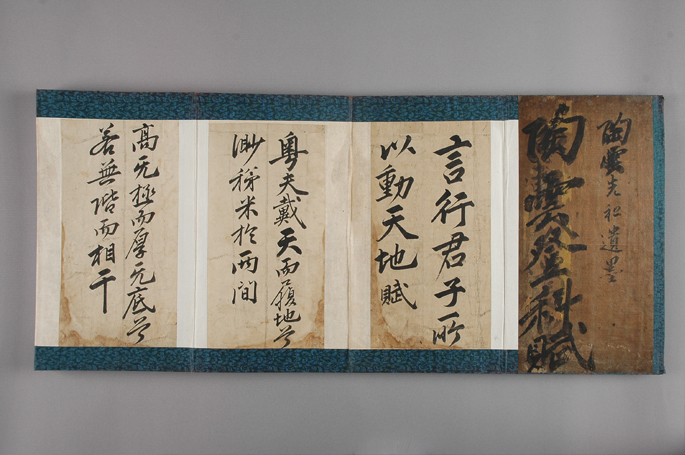 陶雲先祖遺墨
陶雲登科賦
言行君子所
以動天地賦
粤夫戴天而履地兮
渺稊米於兩间
高无極而厚无底兮
若無階而相干